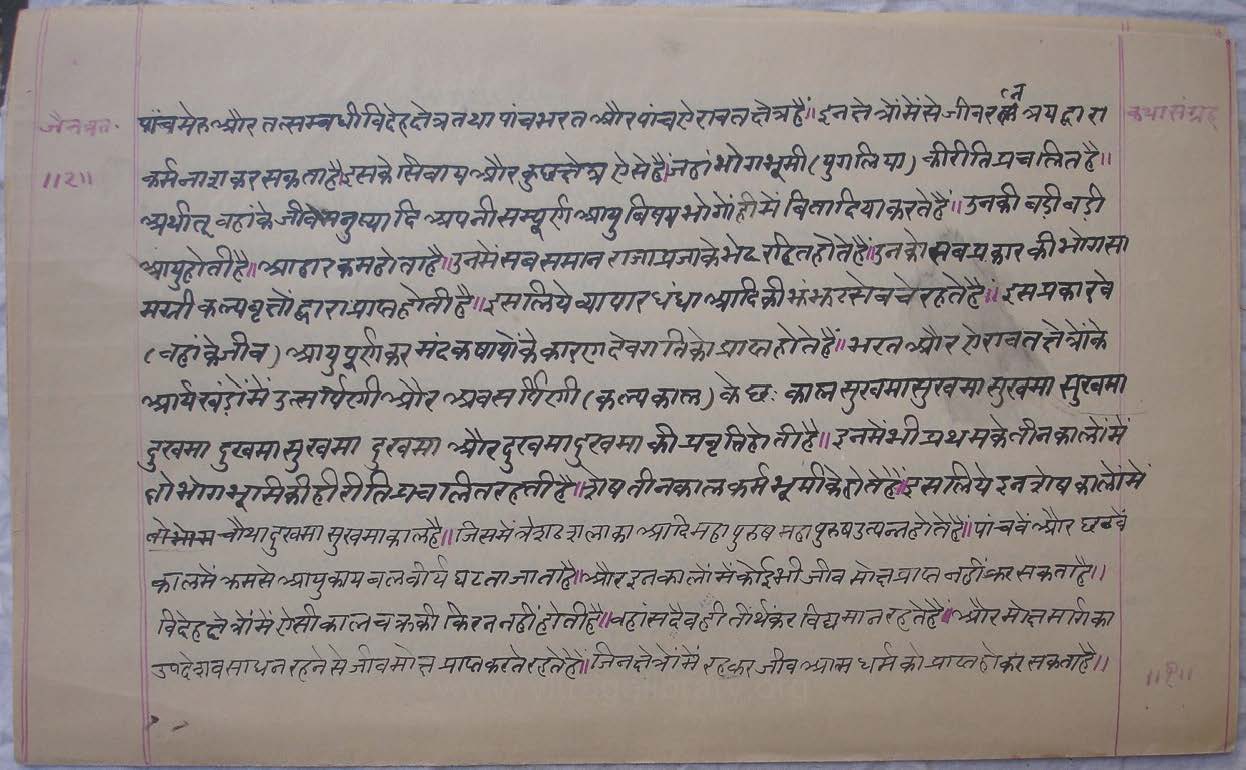 जैनव्रत-
॥२॥
कथासंग्रह
पांचमेरु और तत्सम्बधीविदेहक्षेत्रतथा पांचभरत और पांचऐरावतक्षेत्रहैं॥ इनक्षेत्रोंमेंसे जीवरत्नत्रयद्वारा
कर्मनाशकरसकताहै॥इसकेसिवाय और कुछक्षेत्र ऐसेहैं॥जहांभोगभूमी (युगलिया) कीरीतिप्रचलितहै॥
अर्थात् वहांकेजीवमनुष्यादि अपनीसम्पूर्ण आयु विषयभोगोंहीमें बितादियाकरतेहैं॥उनकी बड़ी बड़ी
आयुहोतीहै॥आहारकमहोताहै॥उनमेंसबसमान राजाप्रजाकेभेदरहितहोतेहैं॥उनकोसबप्रकारकीभोगसा
मग्री कल्पवृक्षोंद्वाराप्राप्तहोतीहै॥इसलियेव्यापारधंधाआदिकीझंझटसेबचेरहतेहैं॥ इसप्रकारवे
(वहांकेजीव) आयुपूर्णकर मंदकषायोंके कारणदेवगतिकोप्राप्तहोतेहैं॥भरत और ऐरावतक्षेत्रोंके
आर्यखंडोंमें उत्सर्पिणीऔर अवसर्पिणी (कल्पकाल) के छः काल सुखमासुखमा सुखमा सुखमा
दुखमा दुखमासुखमा दुखमा और दुखमादुखमा की प्रवृत्तिहोतीहै॥इनमेंभीप्रथमकेतीनकालोंमें
तोभोगभूमिकीहीरीतिप्रचालितरहतीहै॥शेषतीनकालकर्मभूमीकेहोतेहैं॥इसलियेइनशेषकालोंमें
चौथादुखमा सुखमाकालहै॥जिसमेंत्रेशठशलाका आदिमहापुरुषमहापुरुषउत्पन्नहोतेहैं॥पांचवेंऔर छठवें
कालमें क्रमसे आयुकायबलवीर्य घटताजाताहै॥औरइनकालोंमेंकोईभीजीव मोक्षप्राप्त नहींकर सकताहै॥
विदेहक्षेत्रोंमेंऐसीकालचक्रकी फिरननहींहोतीहै॥वहांसदैवहीतीर्थंकरविद्यमानरहतेहैं॥औरमोक्षमार्गका
उपदेशवसाधनरहनेसेजीवमोक्ष प्राप्तकरतेरहतेहैं॥जिनक्षेत्रोंमें रहकर जीव आत्म धर्मकोप्राप्तहो कर सकताहै॥